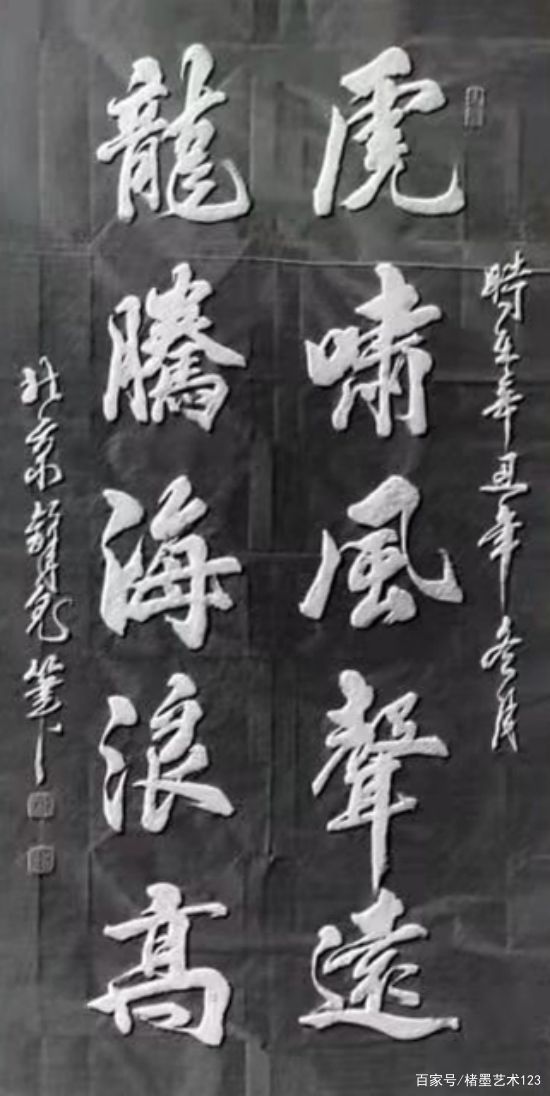 時在辛丑年冬月
虎嘯風聲遠
龍騰海浪高
北京
筆下
百家号/楮墨艺术123